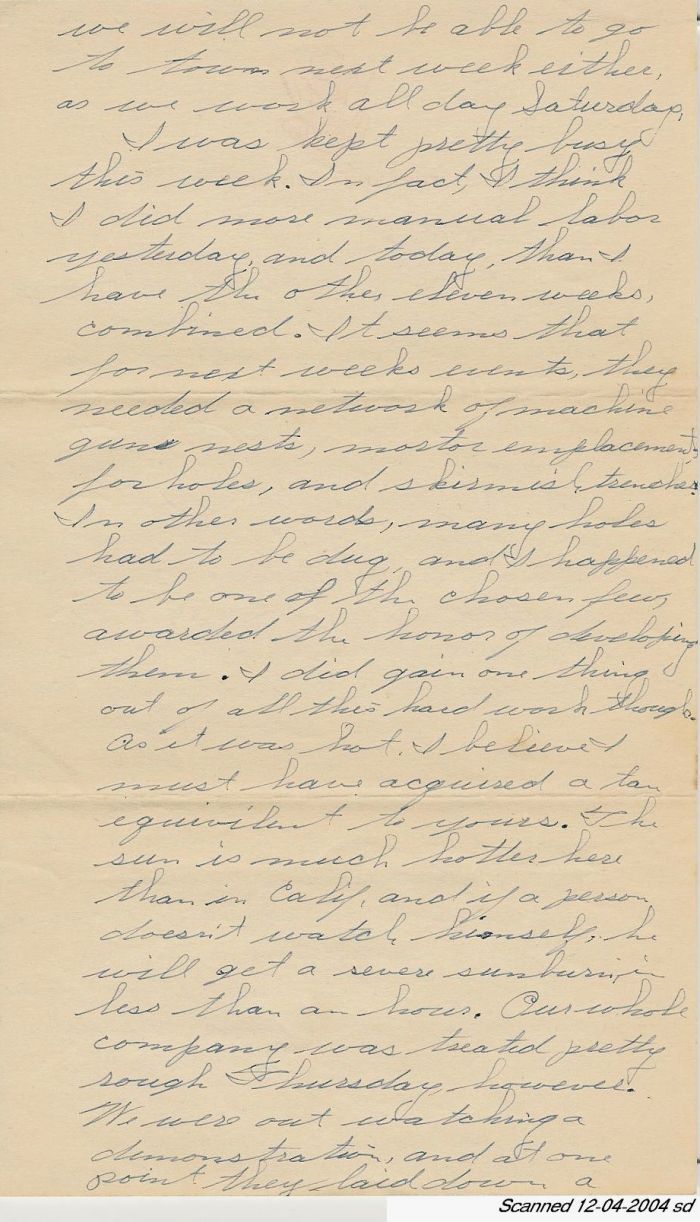 we will not be able to go
to town next week either,
as we work all day Saturday.
I was kept pretty busy
this week. In fact, I think
I did more manual labor
yesterday, and today, than I
have the other eleven weeks,
combined. It seems that
for next weeks events, they
needed a network of machine
gun nests, mortor emplacements,
foxholes, and skirmish trenches.
In other words, many holes
had to be dug, and I happened
to be one of the chosen few,
awarded the honor of developing
them. I did gain one thing
out of all this hard work though.
As it was hot, I believe I
must have acquired a tan
equivilent to yours. The
sun is much hotter here
than in Calif, and if a person
doesn't watch himself, he
will get a severe sunburn, in
less than an hour. Our whole
company was treated pretty
rough Thursday, however.
We were out watching a
demonstration, and at one
point they laid down a
Scanned 12-04-2004 sd